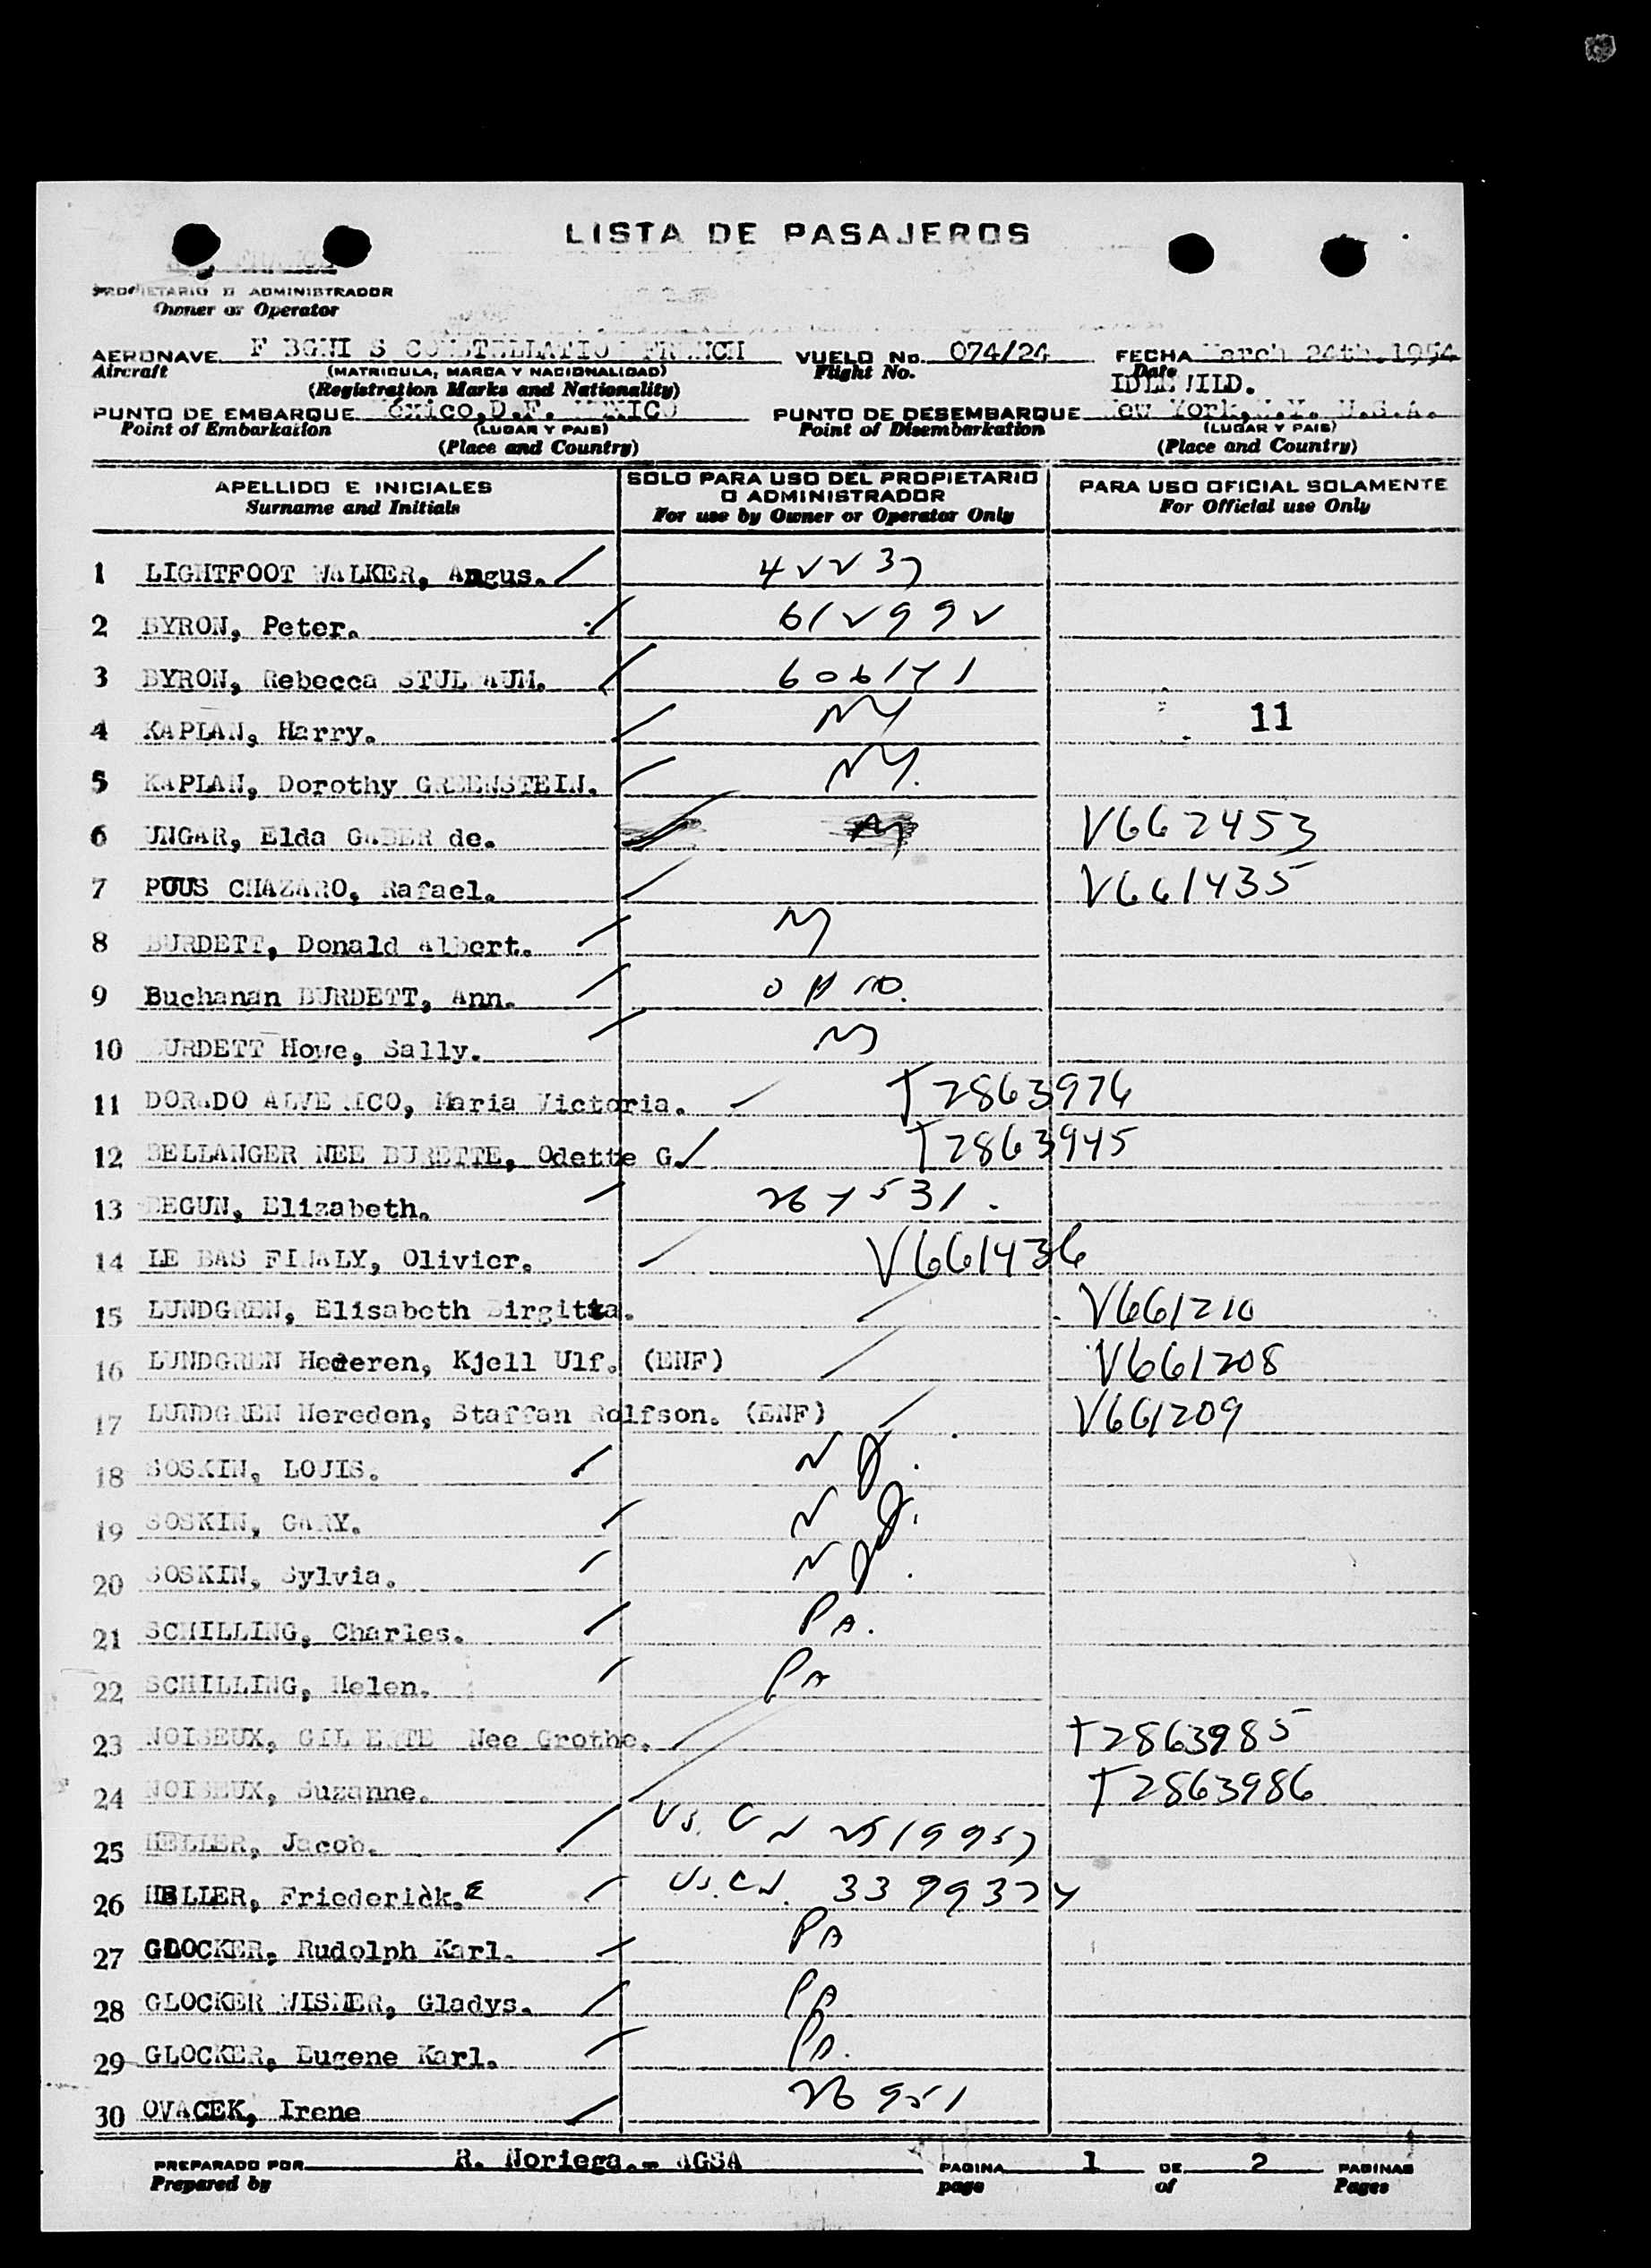 LISTA DE PASAJEROS
FRANCE
PROPIETARIO O ADMINISTRADOR
Owner or Operator
AERONAVE F BGNI S CONSTELLATION FRENCH VUELO No. 074/24 FECHA March 24th.1954
Aircraft (MATRICULA, MARCA Y NACIONALIDAD) Flight No. Date
(Registration Marks and Nationality) IDLEWILD.
PUNTO DE EMBARQUE México,D.F. MEXICO PUNTO DE DESEMBARQUE New York,N.Y. U.S.A.
Point of Embarkation (LUGAR Y PAIS) Point of Disembarkation (LUGAR Y PAIS)
(Place and Country) (Place and Country)
APELLIDO E INICIALES SOLO PARA USO DEL PROPIETARIO O ADMINISTRADOR PARA USO OFICIAL SOLAMENTE
Surname and Initials For use by Owner or Operator Only For Official use Only
1 LIGHTFOOT WALKER, Angus. 42237
2 BYRON, Peter. 612992
3 BYRON, Rebecca STULBAUM. 606141
4 KAPLAN, Harry. NY 11
5 KAPLAN, Dorothy GREENSTEIN. NY.
6 UNGAR, Elda GABER de. V662453
7 POUS CHAZARO, Rafael. V661435
8 BURDETT, Donald Albert.
9 Buchanan BURDETT, Ann. OHIO.
10 BURDETT Howe, Sally.
11 DORADO ALVE ICO, Maria Victoria. T2863976
12 BELLANGER NEE BURETTE, Odette G. T2863945
13 BEGUN, Elizabeth. 264531.
14 LE BAS FINALY, Olivier. V661436
15 LUNDGREN, Elisabeth Birgitta. V661210
16 LUNDGREN Hederen, Kjell Ulf. (ENF) V661208
17 LUNDGREN Hereden, Staffan Rolfson. (ENF) V661209
18 SOSKIN, LOUIS. NJ.
19 SOSKIN, GARY. NJ.
20 SOSKIN, Sylvia. NJ.
21 SCHILLING, Charles. PA.
22 SCHILLING, Helen. PA
23 NOISEUX, GILBERTE Nee Grothe. T2863985
24 NOISEUX, Suzanne. T2863986
25 HELLER, Jacob. US. CN 2519957
26 HELLER, Friederick.E US.CN. 3399374
27 GLOCKER, Rudolph Karl. PA
28 GLOCKER WISNER, Gladys. PA
29 GLOCKER, Eugene Karl. PA.
30 OVACEK, Irene 26951
PREPARADO POR R. Noriega.- AGSA PAGINA 1 DE 2 PAGINAS
Prepared by page of Pages